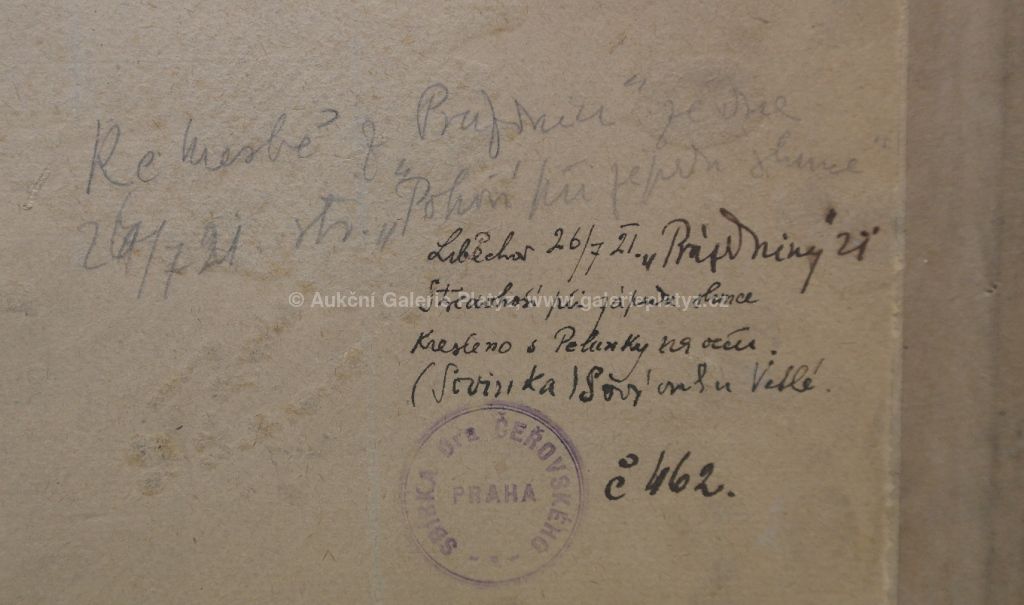 Ke kresbě z "Prázdnin" ze dne
26/7 21 str. "Pohoří při západu slunce"
Liběchov 26/7 21. "Prázdniny" 21
Středohoří při západu slunce
Kresleno s
(Sovinka) Soví vrch u
© Aukční Galerie Platýz www.galerieplatyz.cz
SBÍRKA Dra ČEŘOVSKÉHO
PRAHA
č 462.